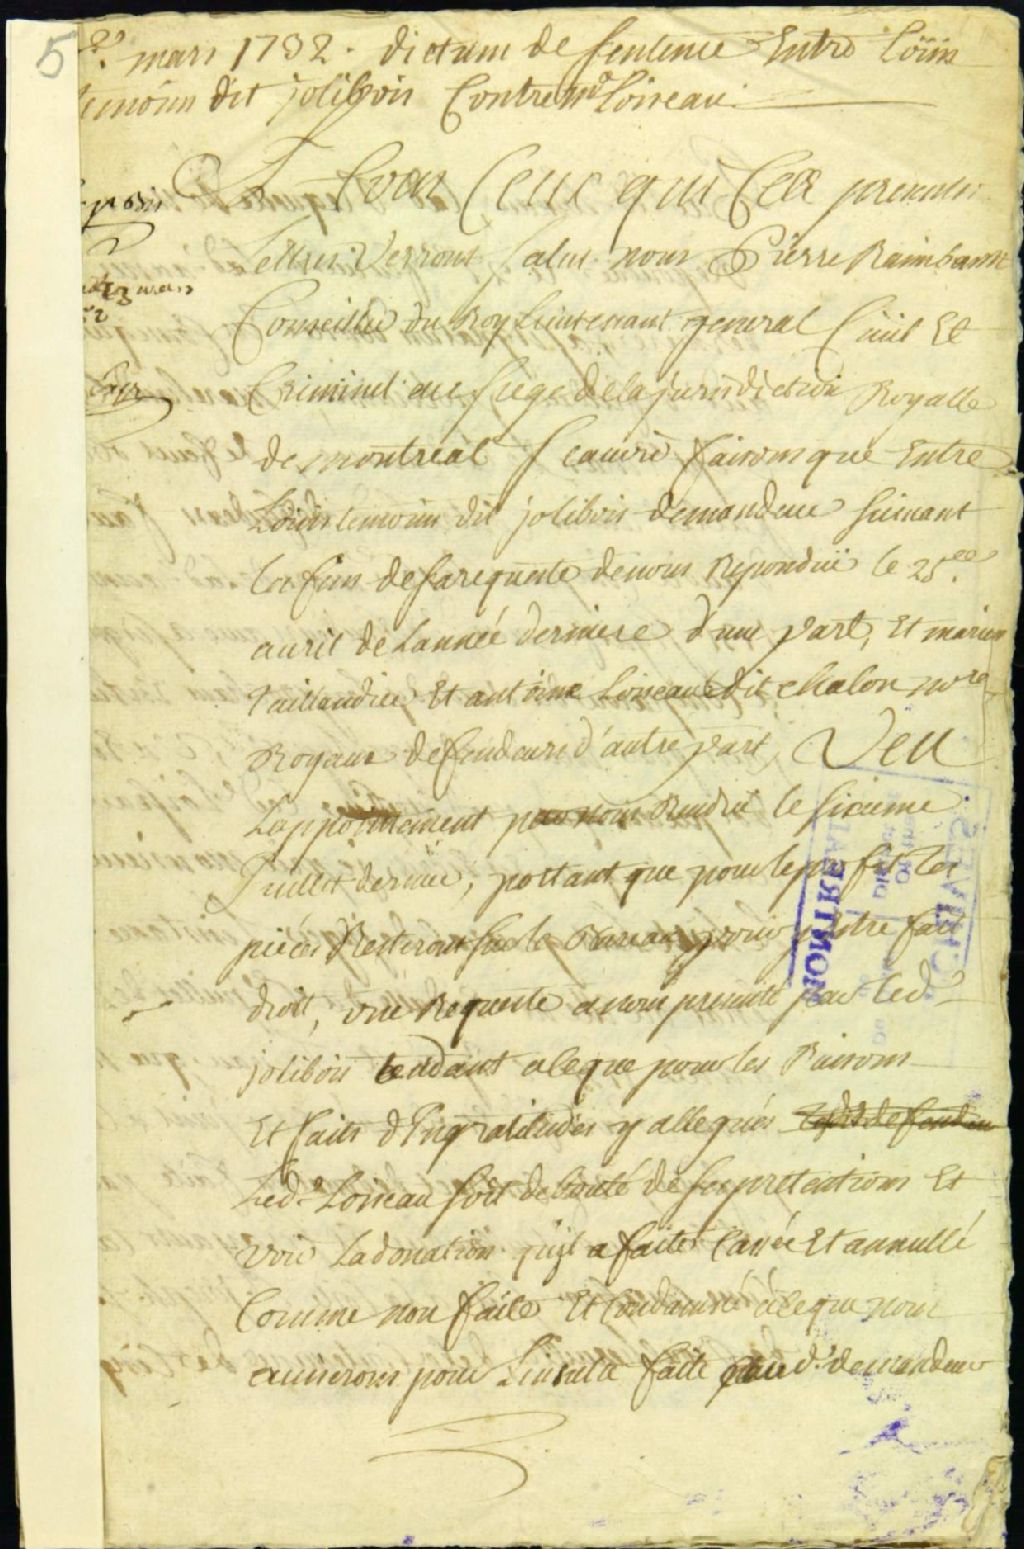 5
mars 1732. dictum de sentence Entre Loüis
Lemoinn dit jolibois Contre md Loiseau
A tous Ceux qui Ces presentes
Lettres Verront Salut nous Pierre Raimbault
Conseiller du Roy Lieutenant general Ciuil Et
Criminel au siege de la jurisdiction Royalle
de montreal scauoir faisons que Entre
Loüis lemoinn dit jolibois demandeur suiuant
les fins de sa requeste de nous Repondüe le 25ee
auril de Lannée derniere d'une part, Et marien
Taillandier Et antoine Loiseau dit chalon nores
Royaux defendeurs d'autre part, Veu
Lappointement par nous Rendüe le sixieme
Juillet dernier, portant que pour le profit les
pièces Resteront sur le Bureau pour y estre fait
droit, une Requeste a nous presenté par led.
jolibois tendant a ceque pour les Raisons
Et faits d'Ingratitudes y allegués lesds defendeurs
Led. Loiseau soit debouté de ses pretentions Et
voir La donation qu'il a faite Cassée Et annullé
Comme non faite Et Condamné à ceque nous
auiserons pour Linsulte faite aud. demandeur
MONTREAL
ARCHIVES